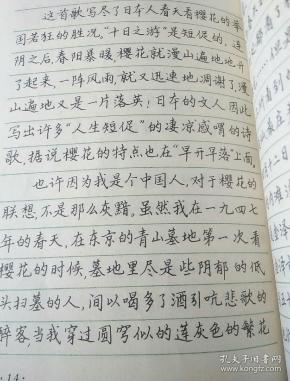 这首歌写尽了日本人春天看樱花的举
国若狂的胜况。“十日之游”是短促的,连
阴之后,春阳暴暖,樱花就漫山遍地地开
了起来,一阵风雨,就又迅速地凋谢了,漫
山遍地又是一片落英!日本的文人因此
写出许多“人生短促”的凄凉感喟的诗
歌,据说樱花的特点也在“早开早落”上面。
也许因为我是个中国人,对于樱花的
联想,不是那么灰黯。虽然我在一九四七
年的春天,在东京的青山墓地第一次看
樱花的时候,墓地里尽是些阴郁的低
头扫墓的人,间以喝多了酒引吭悲歌的
醉客,当我穿过圆穹似的莲灰色的繁花
·14·
孔夫子旧书网